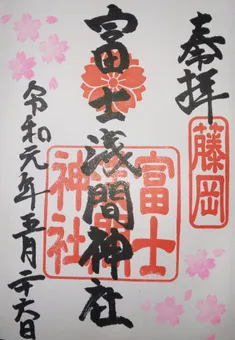 奉拝
藤岡
富士浅間神社
富士
神社
令和元年五月二十六日